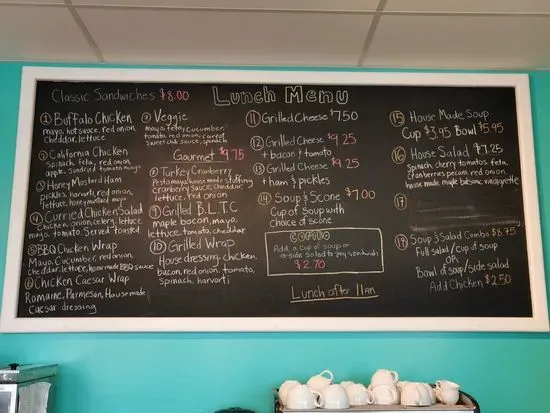 Classic Sandwiches $8.00
Lunch Menu
① Buffalo Chicken
mayo, hot sauce, red onion,
cheddar, lettuce
② California Chicken
Spinach, feta, red onion,
apple, sundried tomato mayo
③ Honey Mustard Ham
pickles, havarti, red onion,
lettuce, honey mustard mayo
④ Curried Chicken Salad
Chicken, onion, celery, lettuce
mayo, tomato. Served toasted.
⑤ BBQ Chicken Wrap
Mayo, Cucumber, red onion,
cheddar, lettuce, house made BBQ sauce
⑥ Chicken Caesar Wrap
Romaine, Parmesan, House made
Caesar dressing
⑦ Veggie
mayo, feta, cucumber,
tomato, red onion, carrot
Sweet chili sauce, spinach
Gourmet $9.75
⑧ Turkey Cranberry
Pesto mayo, house made stuffing
cranberry sauce, cheddar,
lettuce, red onion
⑨ Grilled B.L.T.C
maple bacon, mayo,
lettuce, tomato, cheddar
⑩ Grilled Wrap
House dressing, chicken,
bacon, red onion, tomato,
spinach, havarti
⑪ Grilled Cheese $7.50
⑫ Grilled Cheese $9.25
+ bacon & tomato
⑬ Grilled Cheese $9.25
+ ham & pickles
⑭ Soup & Scone $7.00
Cup of Soup with
choice of scone
COMBO
Add a cup of soup or
a side salad to any sandwich
$2.70
Lunch after 11AM
⑮ House Made Soup
Cup $3.95 Bowl $5.95
⑯ House Salad $7.25
Spinach, cherry tomatoes, feta,
cranberries, pecans, red onion,
house made maple balsamic vinaigrette
⑰
⑱ Soup & Salad Combo $8.75
Full salad / cup of soup
OR
Bowl of soup/side salad
Add Chicken $2.50